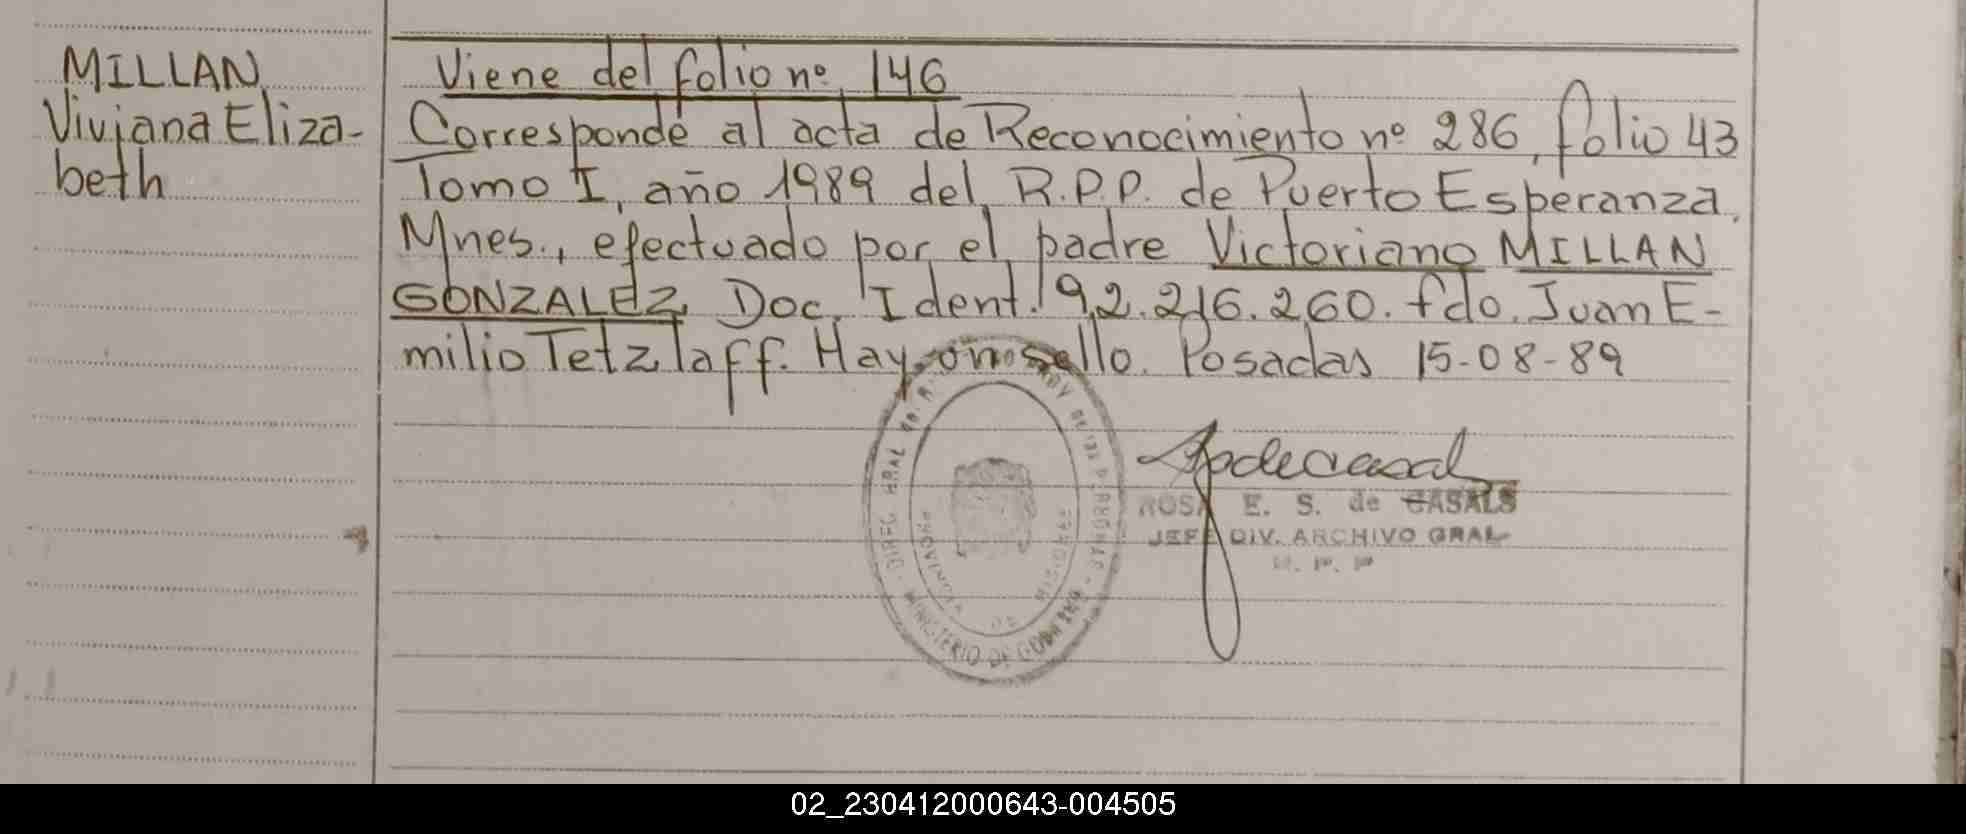 MILLAN
Viviana Eliza-
beth
Viene del folio nº 146
Corresponde al acta de Reconocimiento nº 286, folio 43
Tomo I, año 1989 del R.P.P. de Puerto Esperanza,
Mnes., efectuado por el padre Victoriano MILLAN
GONZALEZ, Doc. Ident. 92.216.260. fdo. Juan E-
milio Tetzlaff. Hay un sello. Posadas 15-08-89
ROSA E. S. de CASALS
JEFE DIV. ARCHIVO GRAL
R. P. P
DIREC GRAL DE
DE LAS PERSONAS
MINISTERIO DE GOBIERNO
PROVINCIA DE MISIONES
02_230412000643-004505